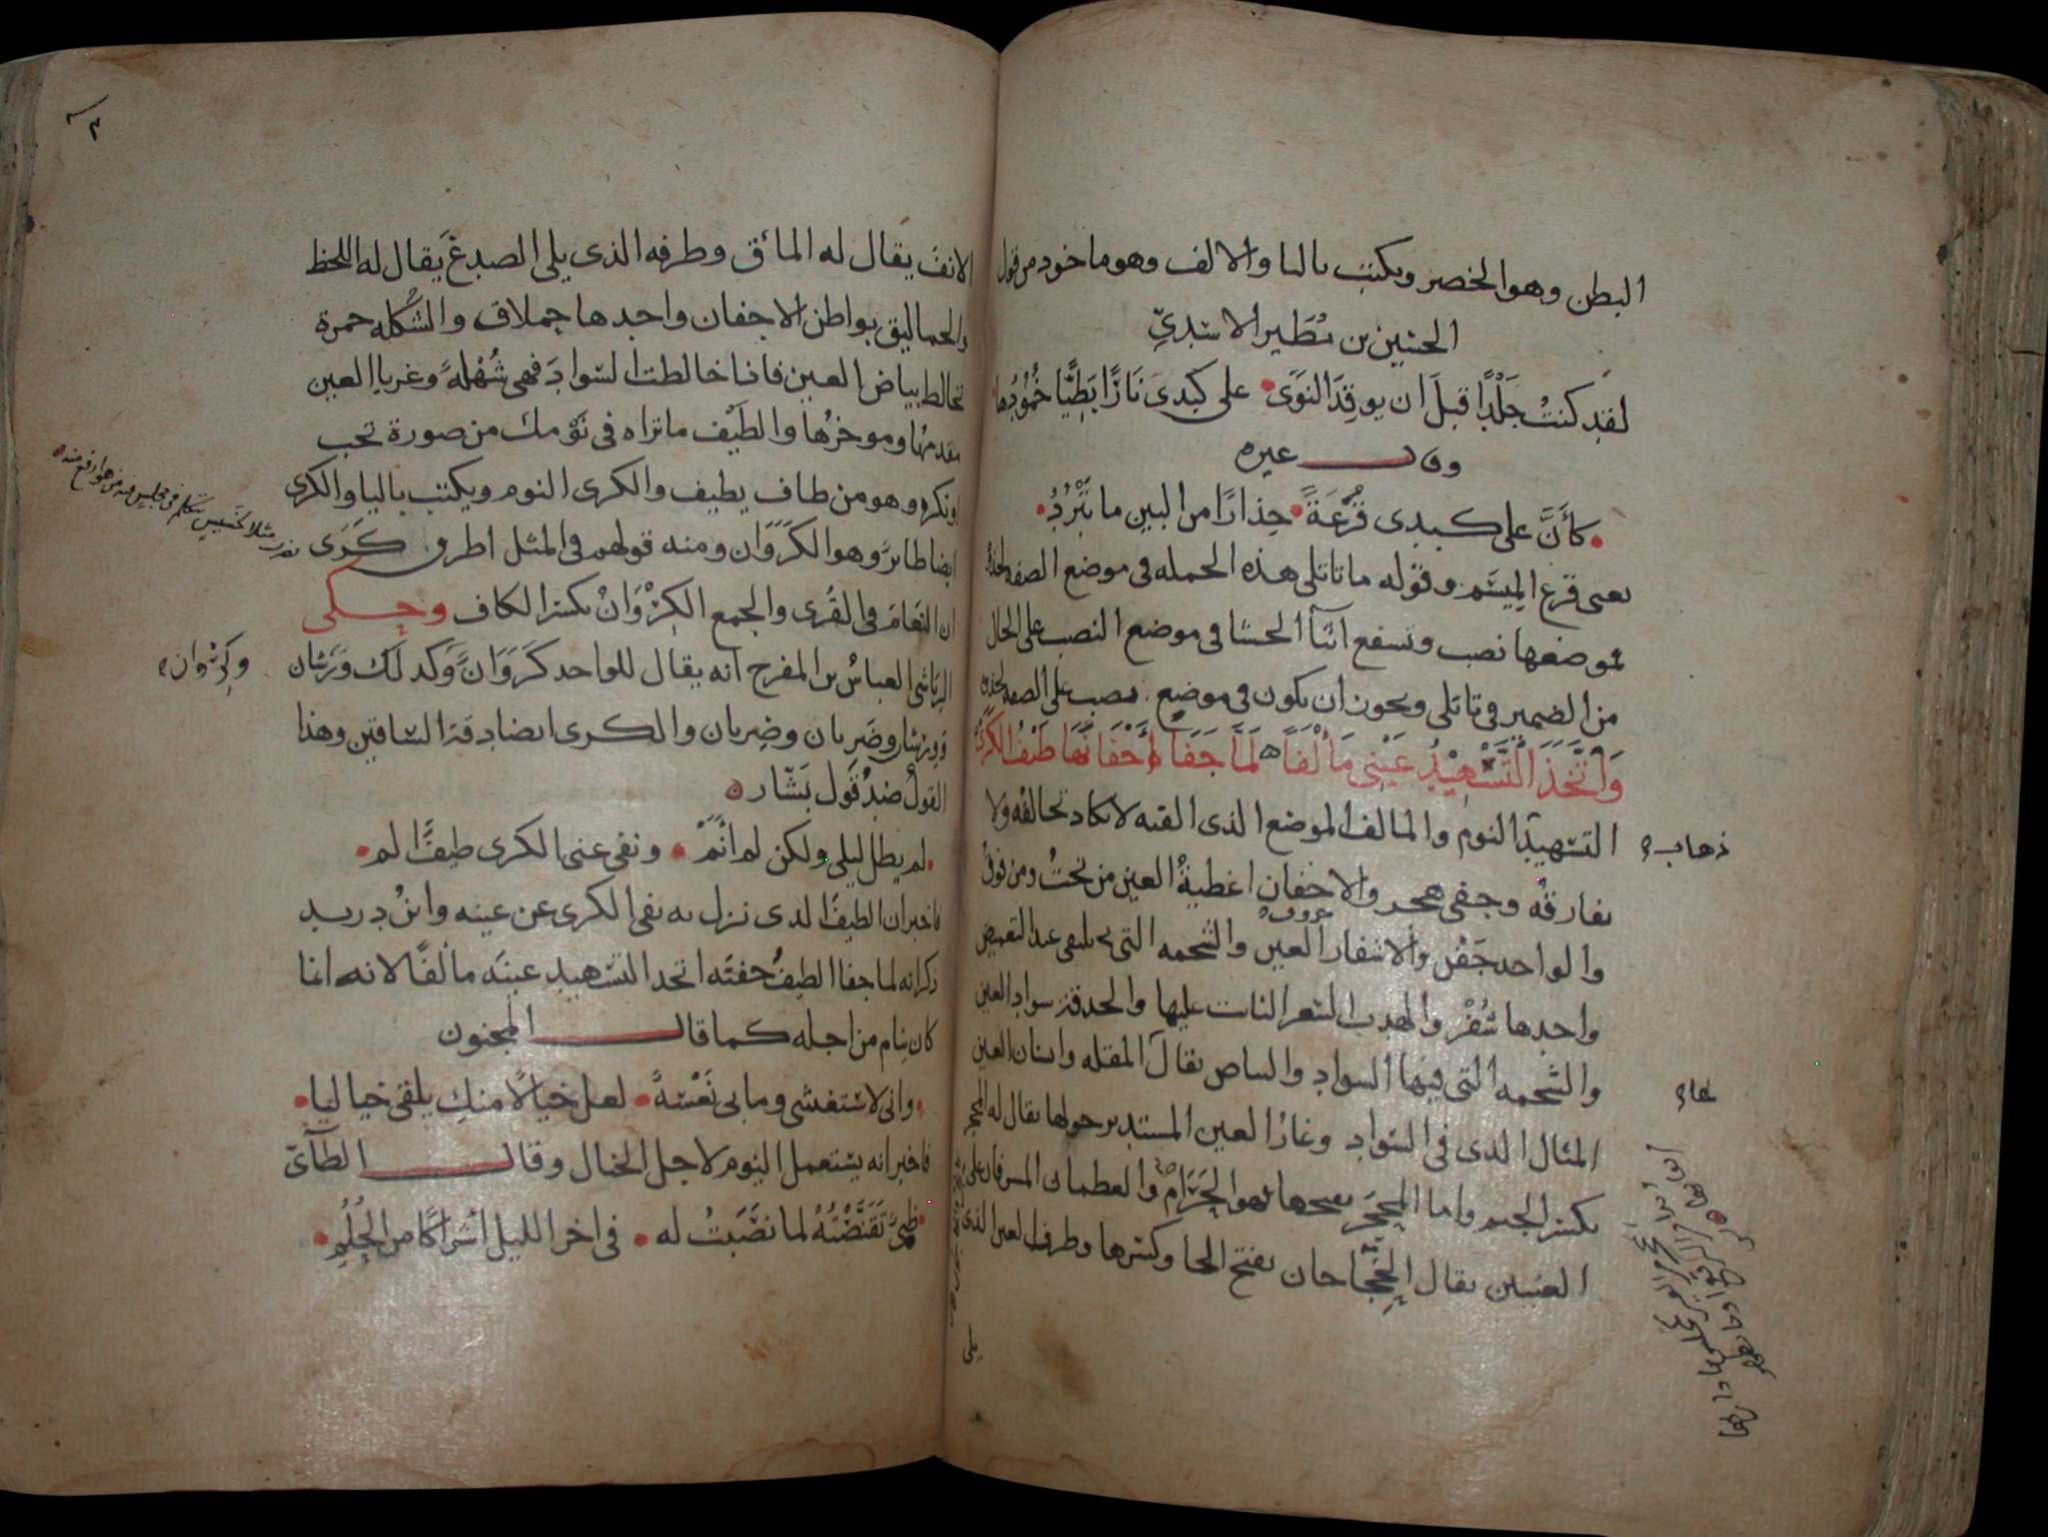 البطن وهو الخصر ويكتب باليا والالف وهو ماخوذ من قول
الحسين بن مُطَير الاسَدِيّ
لقد كنتُ جَلْدًا قبلَ ان يوقِدَ النوَى • على كَبِدى نَارًا بَطِيًّا خُمُودُها
وقال غيره
• كأنَّ على كبدى قُرْعَةً • حِذارًا من البين ما تَبْرُدُ •
يعنى قرع المِيسَم وقوله ما تاتلى هذه الجمله فى موضع الصفه لجذوة
موضعها نصب وتسفع اثنآ الحشا فى موضع النصب على الحال
من الضمير فى تاتلى ويجوز ان يكون فى موضع نصب على الصفه لجذوة
وَاتَّخَذَ التَّسْهِيْدُ عَيْنِى مَأْلَفًا لَمَّا جَفَآ أَجْفَانَهَا طَيْفُ الكَرَى
التسهيد النوم والمالف الموضع الذى الفته لا تكاد تخالفه ولا
ذهاب
تفارقه وجفى هجر والاجفان اغطيةُ العين من تحتُ ومن فوقُ
حروف
والواحد جَفْن والاشفار العين والشحمه التى تلتقى عند التغميض
واحدها شُفْر والهدب الشعر النابت عليها والحدقة سواد العين
والشحمه التى فيها السواد والبياض يقال المقله وانسان العين
المثال الذى فى السواد وغارُ العين المستدير حولها يقال له المحجر
بكسر الجيم واما المحجَر بفتحها فهو الحَرَام والعظمان المشرفان على
العينين يقال الحِجَاجان بفتح الحا وكسرها وطرف العين الذى
يلى
الانف يقال له المائق وطرفه الذى يلى الصدغ يقال له اللحظ
والحماليق بواطن الاجفان واحدها حملاق والشُكله حمرة
تخالط بياض العين فاذا خالطت السوادَ فهى شُهْلةً وغربا العين
مقدمُها وموخرُها والطَيْف ما تراه فى نَوْمك من صورة تحب
او تكره وهو من طاف يطيف والكرى النوم ويكتب باليا والكرى
ايضا طائرٌ وهو الكَرَوَان ومنه قولهم فى المثل اطرق كَرَى
ان النعامَ فى القُرى والجمع الكِرْوَانْ بكسر الكاف وحكى
الرياشى العباسُ بن المفرج انه يقال للواحد كَرَوَانٌ وكذلك وَرَشان
وكِرْوان
وورشان وضَرِبان وضِربان والكرى ايضا دقة الساقين وهذا
القولُ ضدُ قول بَشّار
• لم يطل ليلى ولكن لم انَمْ • ونفى عنى الكرى طيفٌ الم •
فاخبر ان الطيف الذى نزل به نفى الكرى عن عينه وابنُ دريد
ذكر انه لما جفا الطيفُ جفنَه اتخذ التسهيد عينَه مالفًا لانه انما
كان ينام من اجله كما قال المجنون
• وانى لاستغشى وما بى نَعْسَةً • لعل خيالًا منكِ يلقى خياليا •
فاخبر انه يستعمل النوم لاجل الخيال وقال الطآئى
• ظبىٌ تَقَنَّصْتُهُ لما نصَبتُ له • فى اخر الليل اشراكًا من الحُلُمِ •